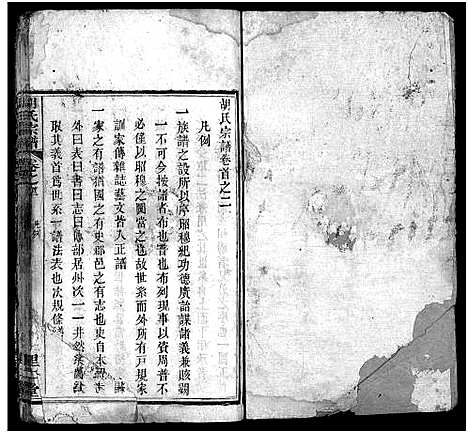 胡氏宗譜卷首之二
凡例
一族譜之設所以序昭穆紀功德廣詒謀諸義兼賅調
不一可今按譜者布也普也布列現事以資周普不
僅以昭穆之圖當之也故世系而外所有戶規家
訓家傳雜誌藝文皆入正譜
一家之有譜猶國之有史郡邑之有志也史自本紀
外曰表曰書曰志曰傳部居州次一一井然
取其義首爲世系一譜法表也次規條
胡氏宗譜
卷首之二
凡例